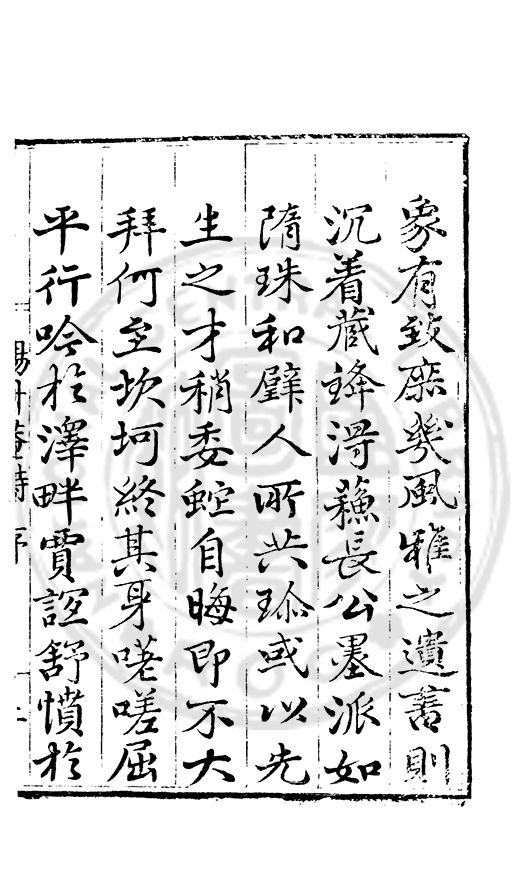 象有致庶幾風雅之遺書則
沉着藏鋒得蘓長公墨派如
隋珠和璧人所共珍或以先
生之才稍委蛇自晦即不大
拜何至坎坷終其身嗟嗟屈
平行吟於澤畔賈誼舒憤於
序